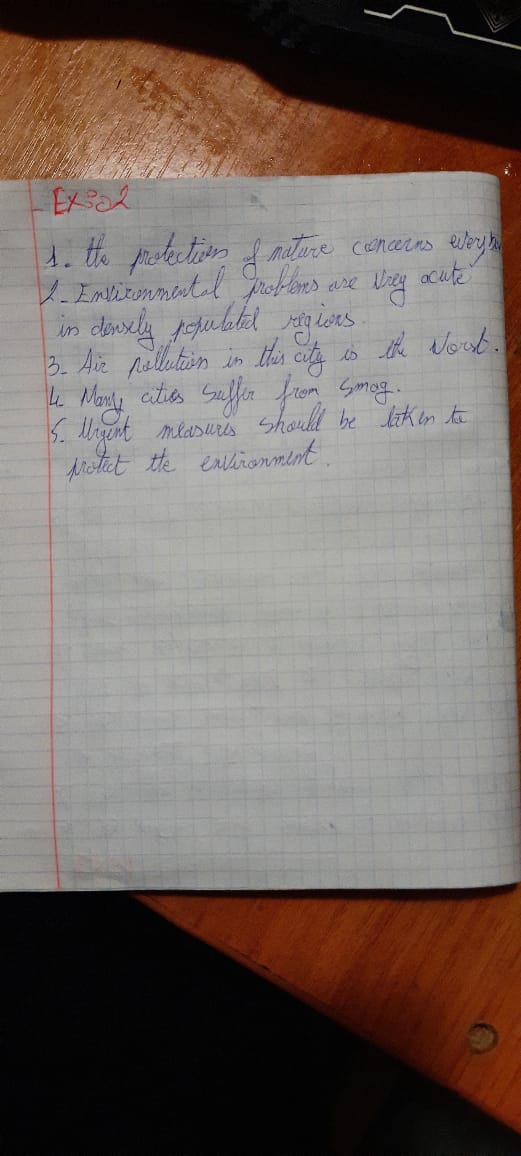 Exo02
1. the protection of nature concerns everybo
2. Environmental problems are Vrey acute
in densely populated regions.
3. Air pollution in this city is the Worst.
4. Many cities Suffer from Smog.
5. Urgent measures should be taken to
protect the environment.